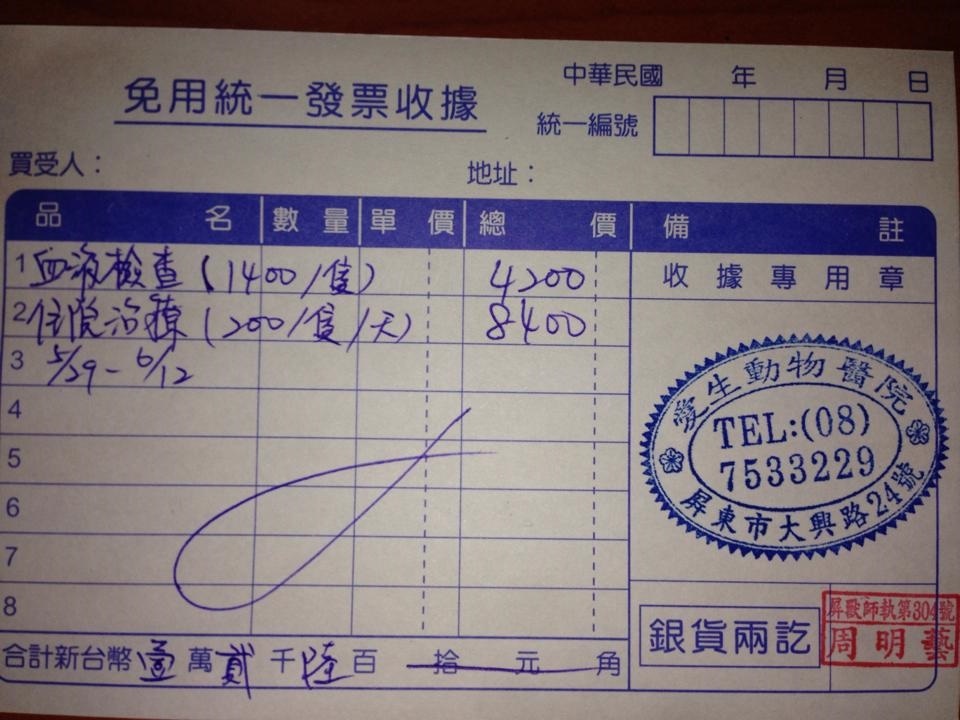 免用統一發票收據
中華民國 年 月 日
統一編號
買受人：
地址：
品名 數量 單價 總價 備註
1 血液檢查 (1400/隻) 4200
收據專用章
2 住院治療 (200/隻/天) 8400
3 5/29-6/12
4
5
6
7
8
愛生動物醫院
TEL:(08)
7533229
屏東市大興路24號
銀貨兩訖
屏獸師執第304號
周明藝
合計新台幣壹萬貳千陸百拾元角